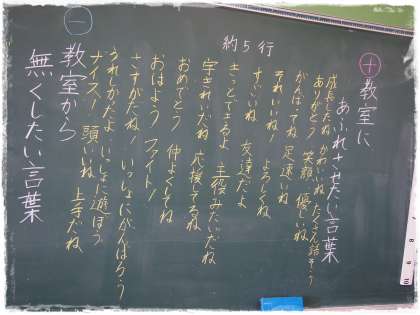 約5行
⊕教室に
あふれさせたい言葉
成長したね かわいいね たくさん話そう
ありがとう 笑顔 優しいね
がんばってね 足速いね
それいいね! よろしくね
すごいね 友達だよ
きっとできるよ 主役みたいだね
字きれいだね 応援してるね
おめでとう 仲よくしてね
おはよう ファイト!
さすがだね! いっしょにがんばろう
うれしかったよ いっしょに遊ぼう
ナイス! 頭いいね 上手だね
⊖教室から
無くしたい言葉
8
9
10